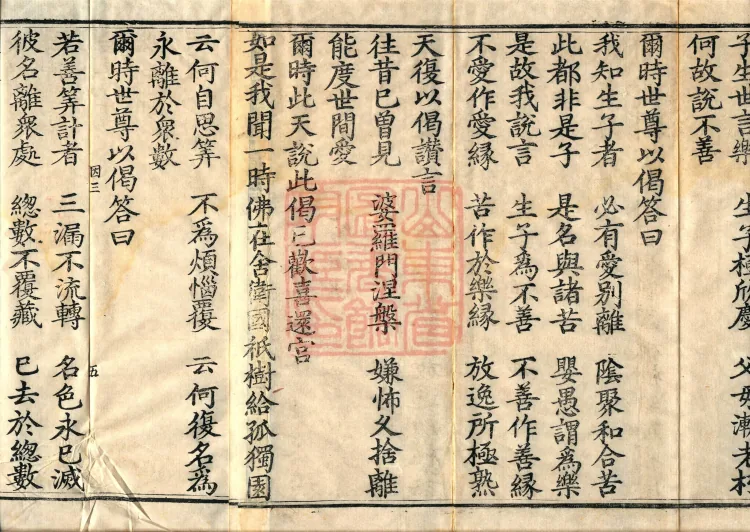 子生世言樂 生子極欣慶 父母漸老朽
何故說不善
爾時世尊以偈答曰
我知生子者 必有愛別離 陰聚和合苦
此都非是子 是名與諸苦 嬰愚謂為樂
是故我說言 生子為不善 不善作善緣
不愛作愛緣 苦作於樂緣 放逸所極熟
天復以偈讚言
往昔已曾見 婆羅門涅槃 嫌怖久捨離
能度世間愛
爾時此天說此偈已歡喜還宮
如是我聞一時佛在舍衛國祇樹給孤獨園
云何自思筭 不為煩惱覆 云何復名為
永離於眾數
爾時世尊以偈答曰
因三 五
若善筭計者 三漏不流轉 名色永已滅
彼名離眾處 總數不覆藏 已去於總數